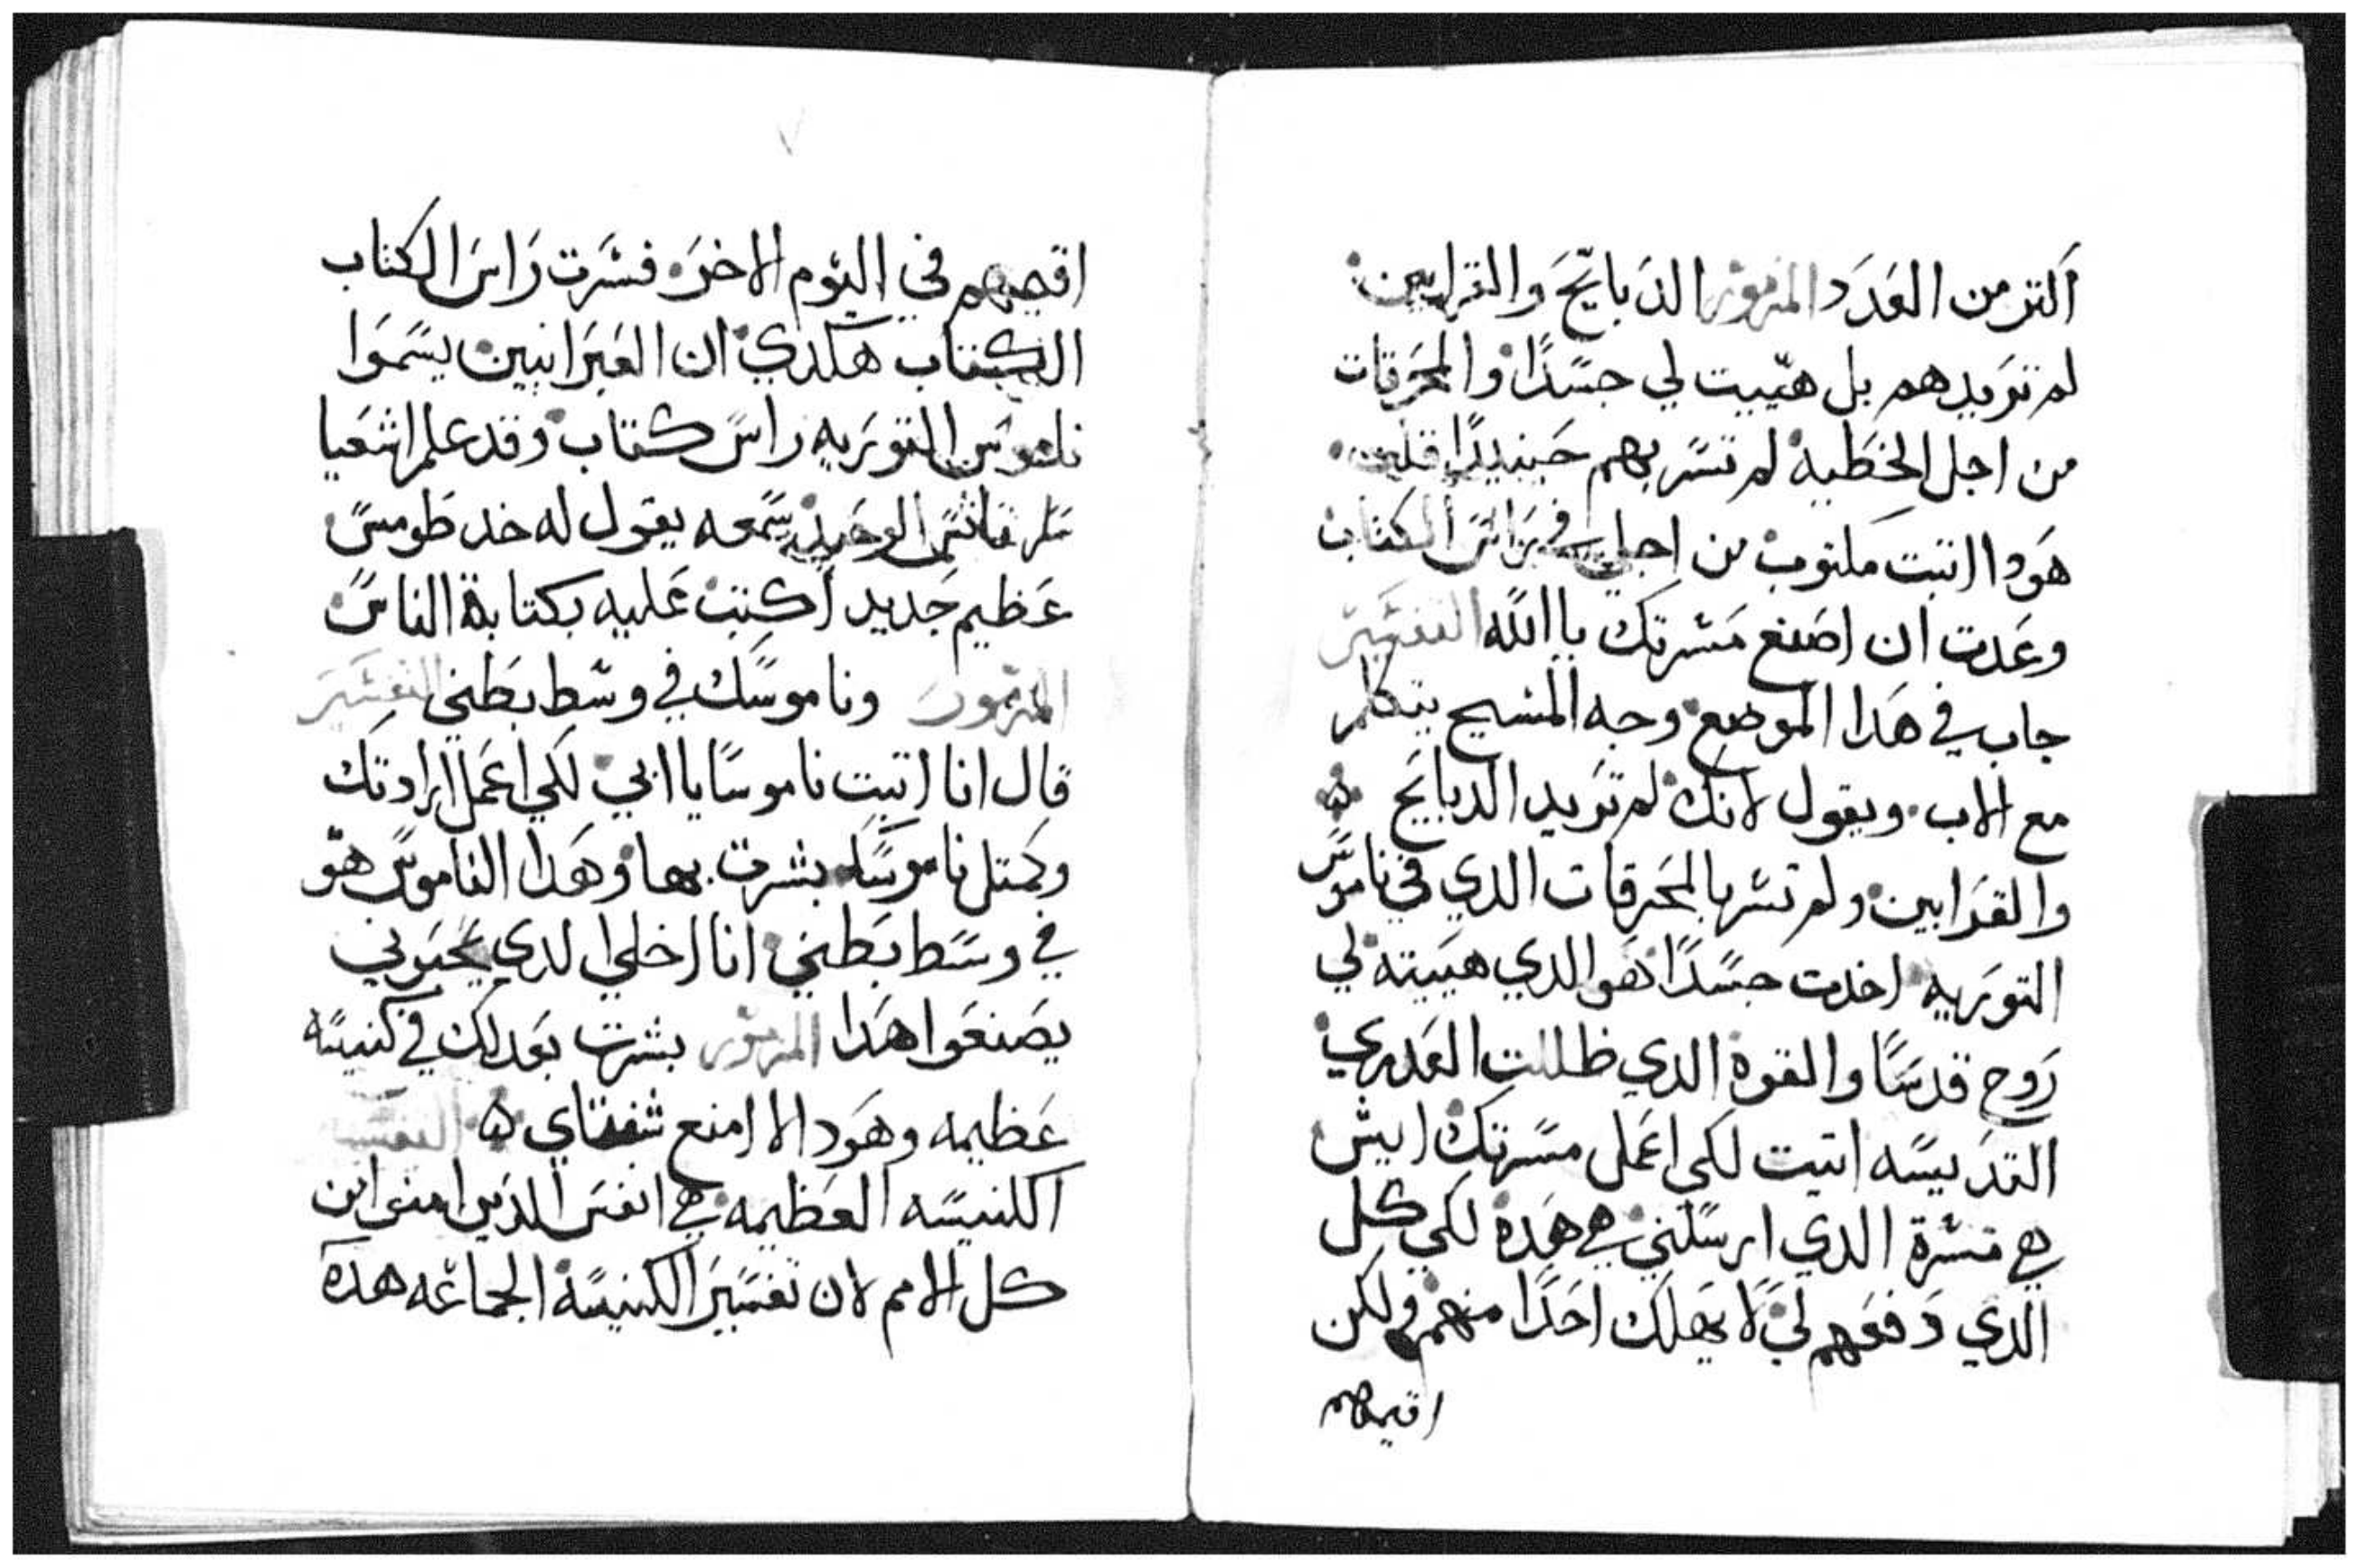 اكتر من العدد المزمور الدبايح والقرابين
لم تريدهم بل هييت لي جسدًا والمحرقات
من اجل الخطيه لم تسر بهم حينيدًا قلت
هودا اتيت مكتوب من اجلي في راس الكتاب
وعدت ان اصنع مسرتك يا الله التفسير
جاب في هدا الموضع وجه المسيح يتكلم
مع الاب ويقول لانك لم تريد الدبايح
والقرابين ولم تسر بالمحرقات الدي في ناموس
التوريه اخدت جسدًا هو الدي هييته لي
روح قدسًا والقوه الدي ظللت العدري
القديسه اتيت لكي اعمل مسرتك ايش
هي مسرة الدي ارسلني هي هده لكي كل
الدي دفعهم لي لا يهلك احدًا منهم ولكن
اقيمهم
اقيمهم في اليوم الاخر فسرت راس الكتاب
الكتاب هكدي ان العبرانيين يسموا
ناموس التوريه راس كتاب وقد علم اشعيا
الوحي سمعه يقول له خد طومس
عظيم جديد اكتب عليه بكتابة الناس
المزمور وناموسك في وسط بطني التفسير
قال انا اتيت ناموسًا يا ابي لكي اعمل ارادتك
وكمتل ناموسك بشرت بها وهدا الناموس هو
في وسط بطني انا اخلي الدي يحبوني
يصنعوا هدا المزمور بشرت بعدلك في كنيسه
عظيمه وهودا لا امنع شفتاي التفسير
الكنيسه العظيمه هي انفس الدين امنوا من
كل الامم لان تفسير الكنيسه الجماعه هده